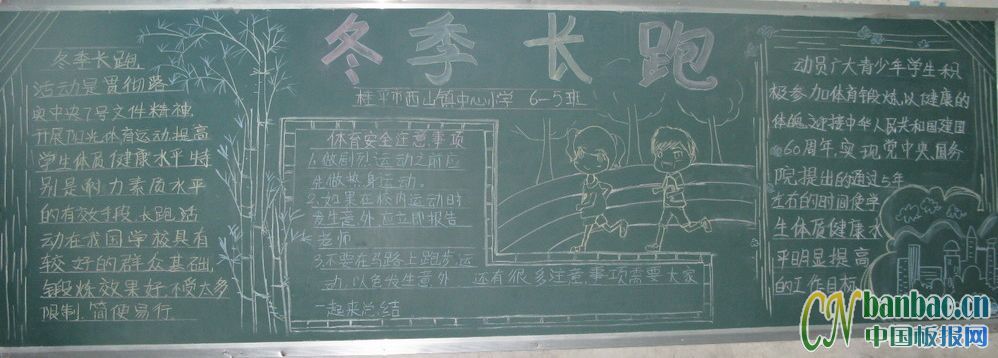 冬季长跑
桂平市西山镇中心小学 6-5班
冬季长跑
活动是贯彻落
实中央7号文件精神,
开展阳光体育运动,提高
学生体质健康水平特
别是耐力素质水平
的有效手段.长跑活
动在我国学校具有
较好的群众基础,
锻炼效果好,不受太多
限制,简便易行.
体育安全注意事项
1.做剧烈运动之前应
先做热身运动。
2.如果在校内运动时
发生意外应立即报告
老师
3.不要在马路上跑步运
动,以免发生意外.还有很多注意事项需要大家
一起来总结
动员广大青少年学生积
极参加体育锻炼,以健康的
体魄迎接中华人民共和国建国
60周年,实现党中央、国务
院提出的通过5年
左右的时间使学
生体质健康水
平明显提高
的工作目标
CN banbao.cn
中国板报网